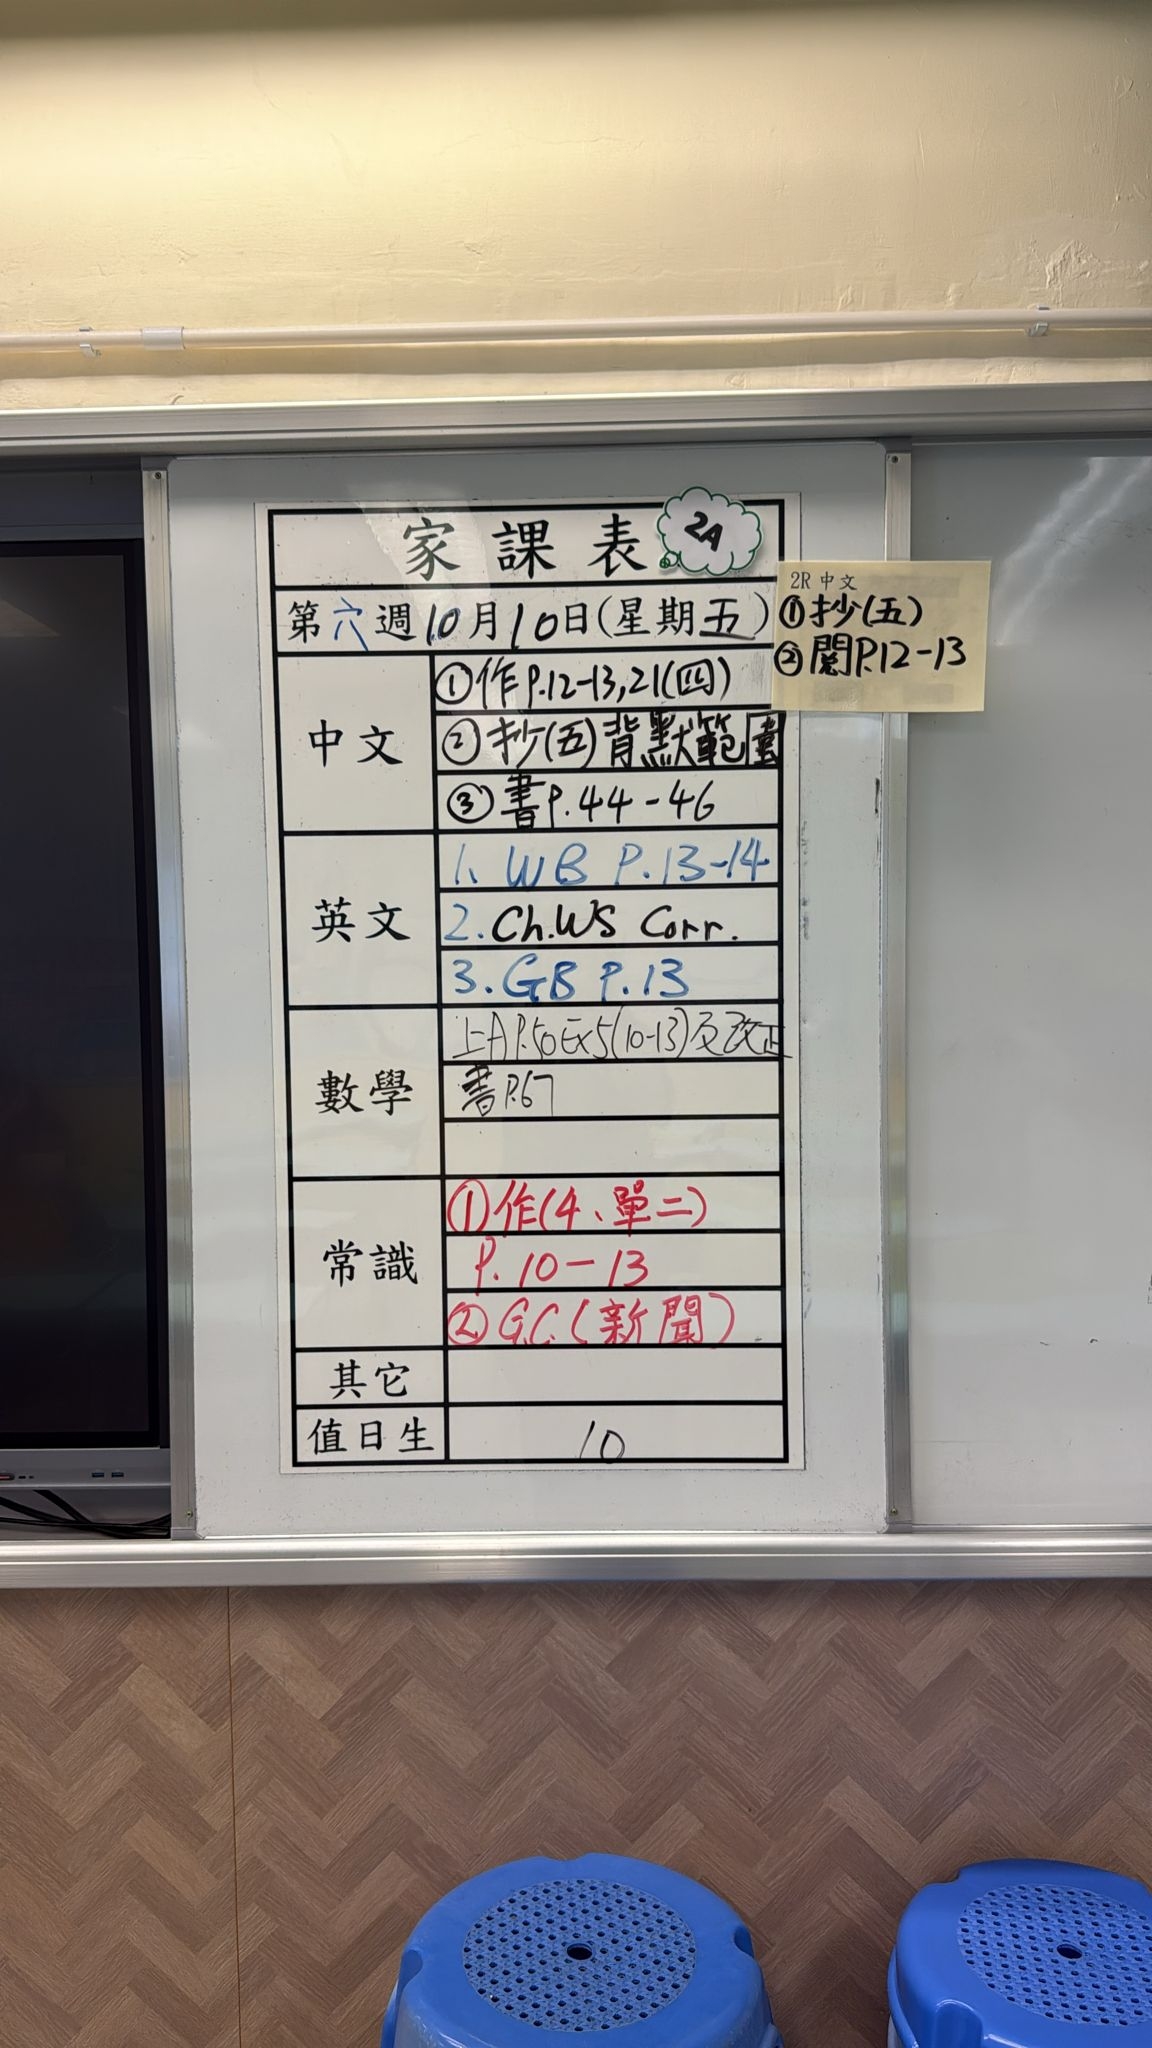 家課表 2A
第六週10月10日(星期五)
中文
①作P.12-13,21(四)
②抄(五)背默範圍
③書P.44-46
英文
1. WB P.13-14
2. Ch.WS Corr.
3. GB P.13
數學
上A P.50 Ex5(10-13)及改正
書P.67
常識
①作(4、單二)
P.10-13
②G.C.(新聞)
其它
值日生
10
2R 中文
①抄(五)
②閱P.12-13